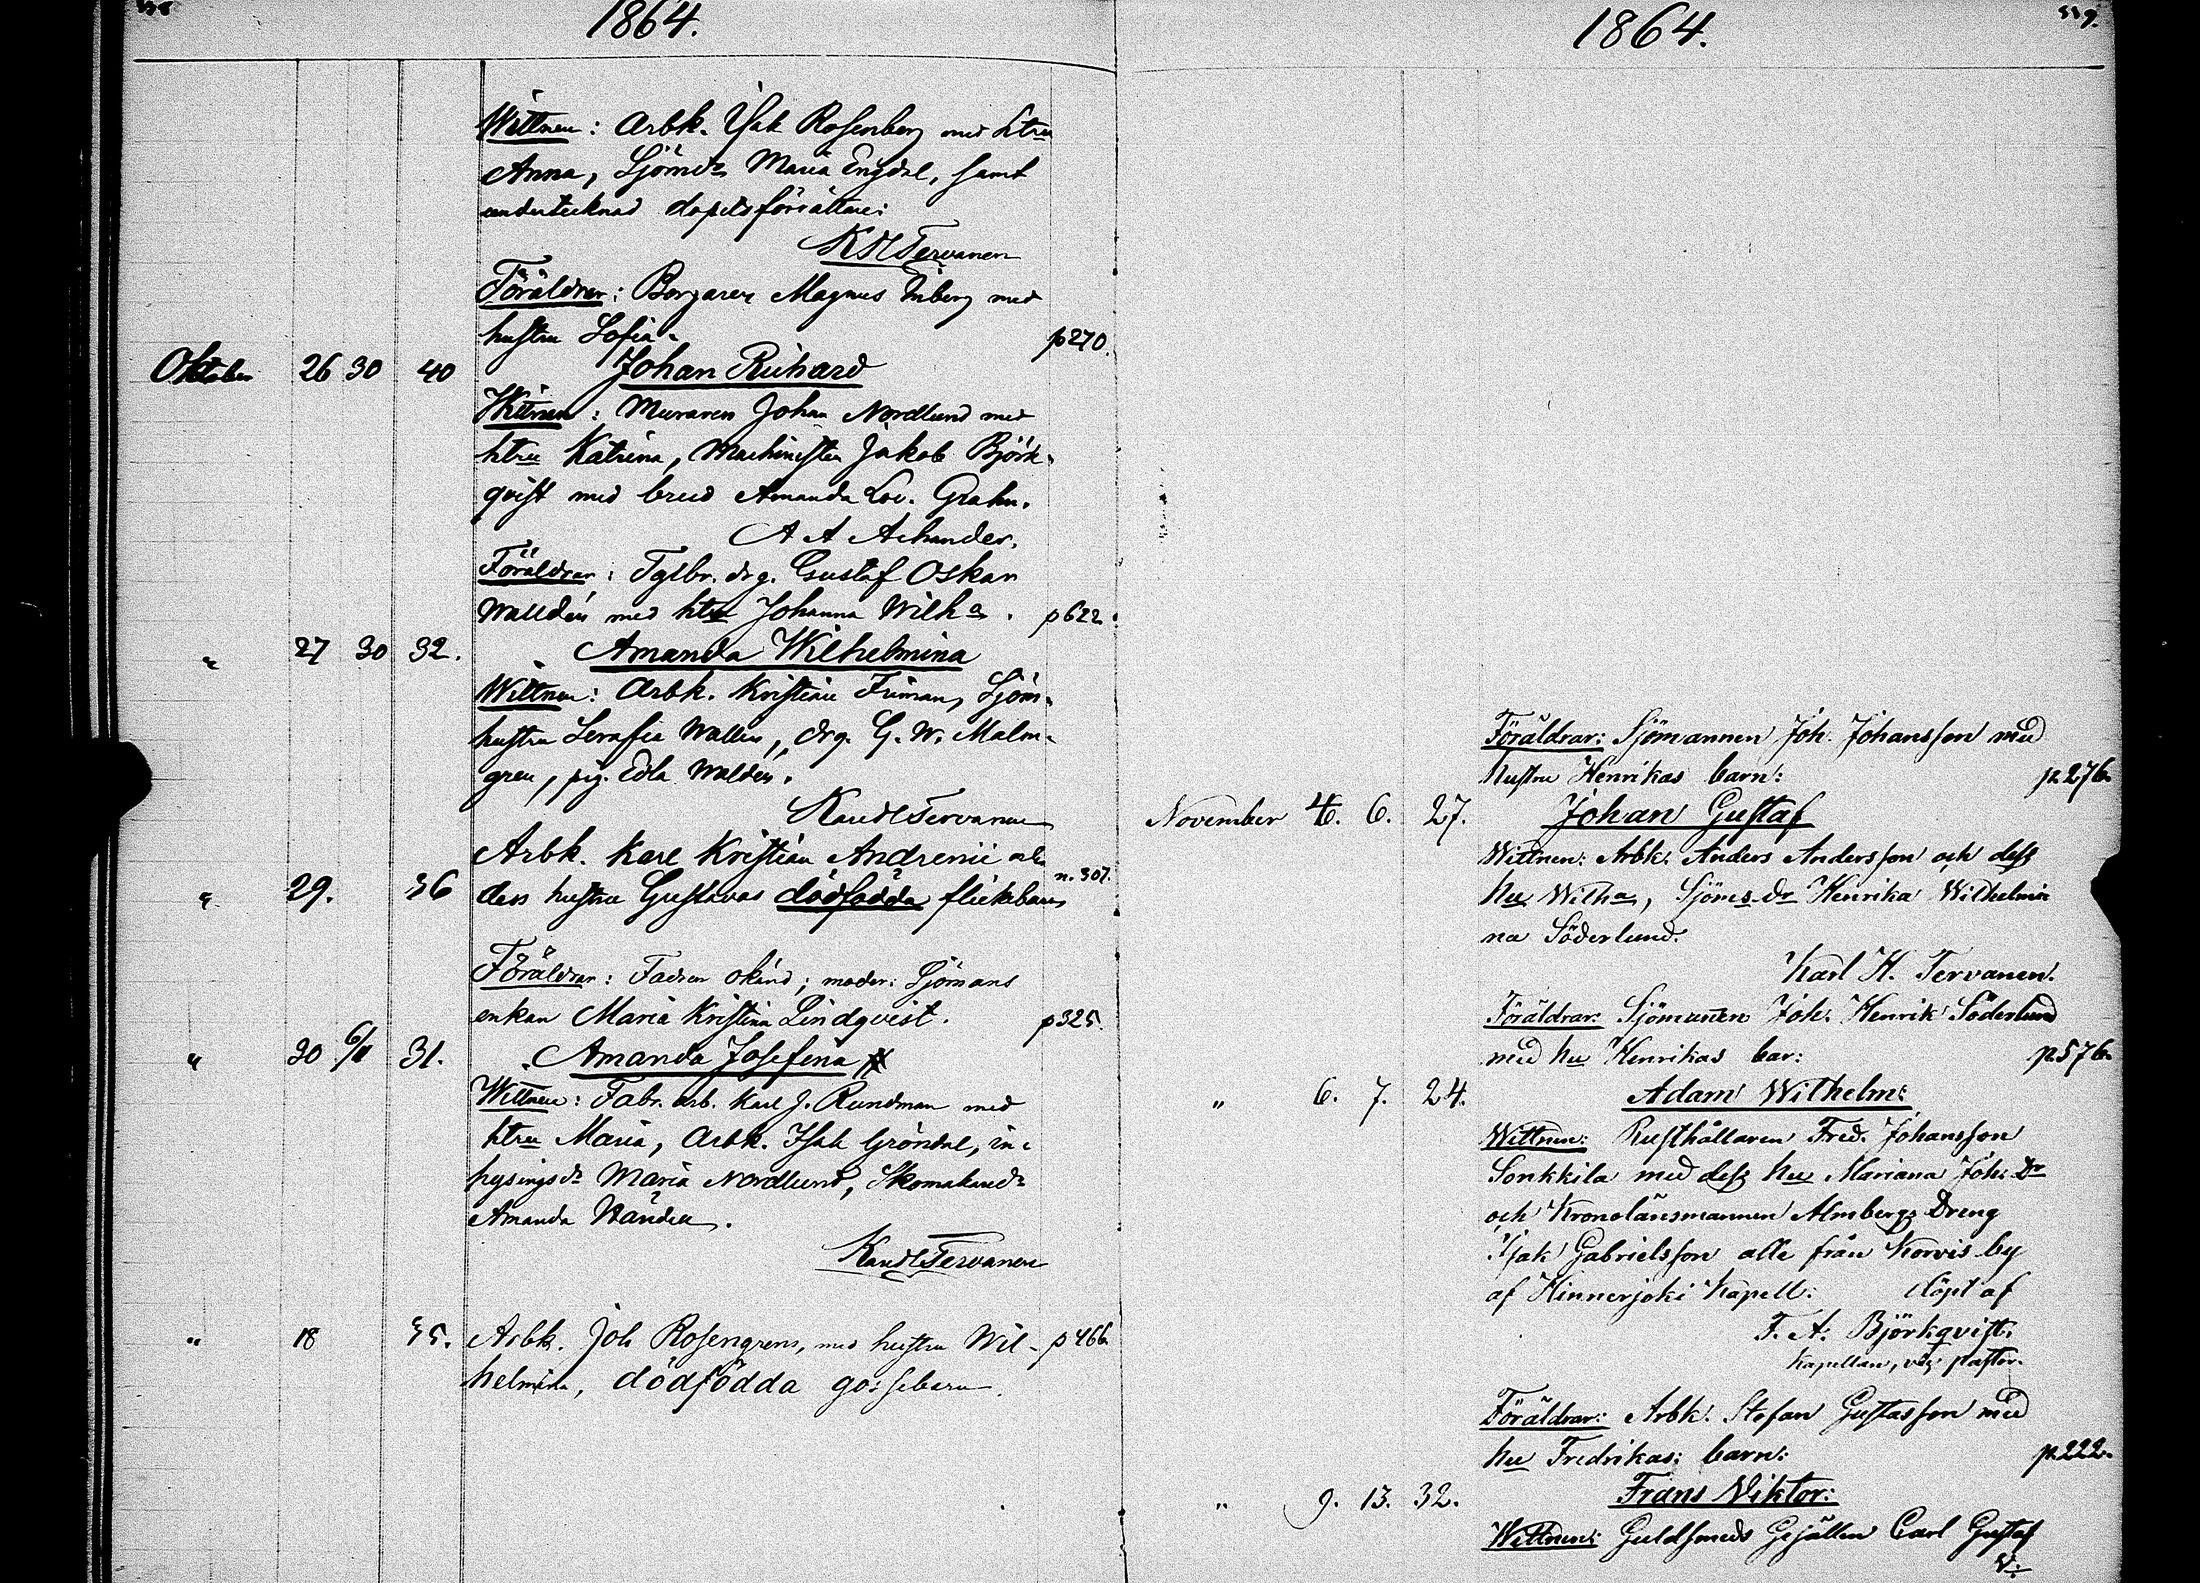 1864.
Wittnen: Arbk. Isak Rosenberg med htru
Anna, Sjömds Maria Engdal, samt
undertecknad dopsförrättare:
K H Tervanen
Föräldrar: Borgaren Magnus Enberg med
hustru Sofia. p 270.
Oktober 26 30 40 Johan Richard
Wittnen: Muraren Johan Nordlund med
htru Katrina, Machinisten Jakob Björk-
qvist med brud Amanda Lov. Grahn.
A A Achander.
Föräldrar: Tglbr. drg. Gustaf Oskar
Walldén med htru Johanna Wilha. p 622.
" 27 30 32. Amanda Wilhelmina
Wittnen: Arbk. Kristian Friman, Sjöm-
hustru Serafia Wallin, drg. G. W. Malm-
gren, pig. Edla Waldén.
Karl H Tervanen
Arbk. Karl Kristian
" 29. 36 dess hustru Gustavas dödfödda flickbarn n. 307.
Föräldrar: Fadren okänd; moder: Sjömans
enkan Maria Kristina Lindqvist. p 325.
" 30 6/11 31. Amanda Josefina
Wittnen: Fabr. arb. Karl J. Rundman med
htru Maria, Arbk. Isak Gröndal, in-
hysingsdr Maria Nordlund, Skomakaredr
Amanda
Karl H Tervanen
" 18 35. Arbk. Joh Rosengrens, med hustru Wil- p 466.
helmina, dödfödda gossebarn.
1864.
Föräldrar: Sjömannen Joh. Johansson med
hustru Henrikas barn: p. 276.
November 4. 6. 27. Johan Gustaf
Wittnen: Arbk. Anders Andersson och dess
hu Wilha, Sjömsdr Henrika Wilhelmi-
na Söderlund.
Karl H. Tervanen.
Föräldrar: Sjömannen Joh. Henrik Söderlund
med hu Henrikas bar: p. 576.
" 6. 7. 24. Adam Wilhelm:
Wittnen: Rusthållaren Fred. Johansson
Sonkkila med dess hu Mariana Joh. Dr
och Kronolänsmannen Almbergs Dreng
Isak Gabrielsson alla från Korvis by
af Hinnerjoki Kapell: döpt af
F. A. Björkqvist.
Kapellan, vice pastor.
Föräldrar: Arbk. Stefan Gustafsson med
hu Fredrikas: barn: p. 222.
" 9. 13. 32. Frans Viktor:
Wittnen: Guldsmeds Gesällen Carl Gustaf
V: